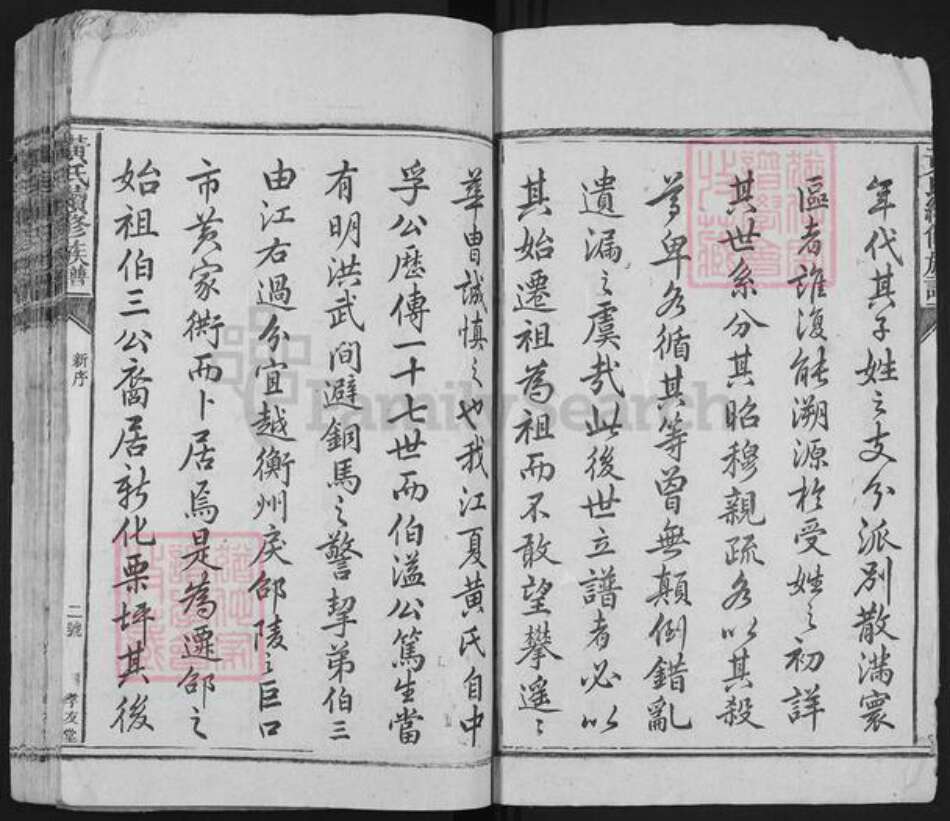 年代其子姓之支分派別散滿寰
區者誰復能溯源於受姓之初詳
其世系分其昭穆親疏各以其殺
尊卑各循其等曾無顛倒錯亂
遺漏之虞哉此後世立譜者必以
其始遷祖為祖而不敢望攀遙遙
華胄誠慎之也我江夏黃氏自中
孚公歷傳一十七世而伯溢公篤生當
有明洪武间避銅馬之警挈弟伯三
由江右過分宜越衡州戾邵陵之巨口
市黃家衖而卜居焉是為遷邵之
始祖伯三公裔居新化栗坪其後
黃氏續修族譜
新序
二號
孝友堂
FamilySearch